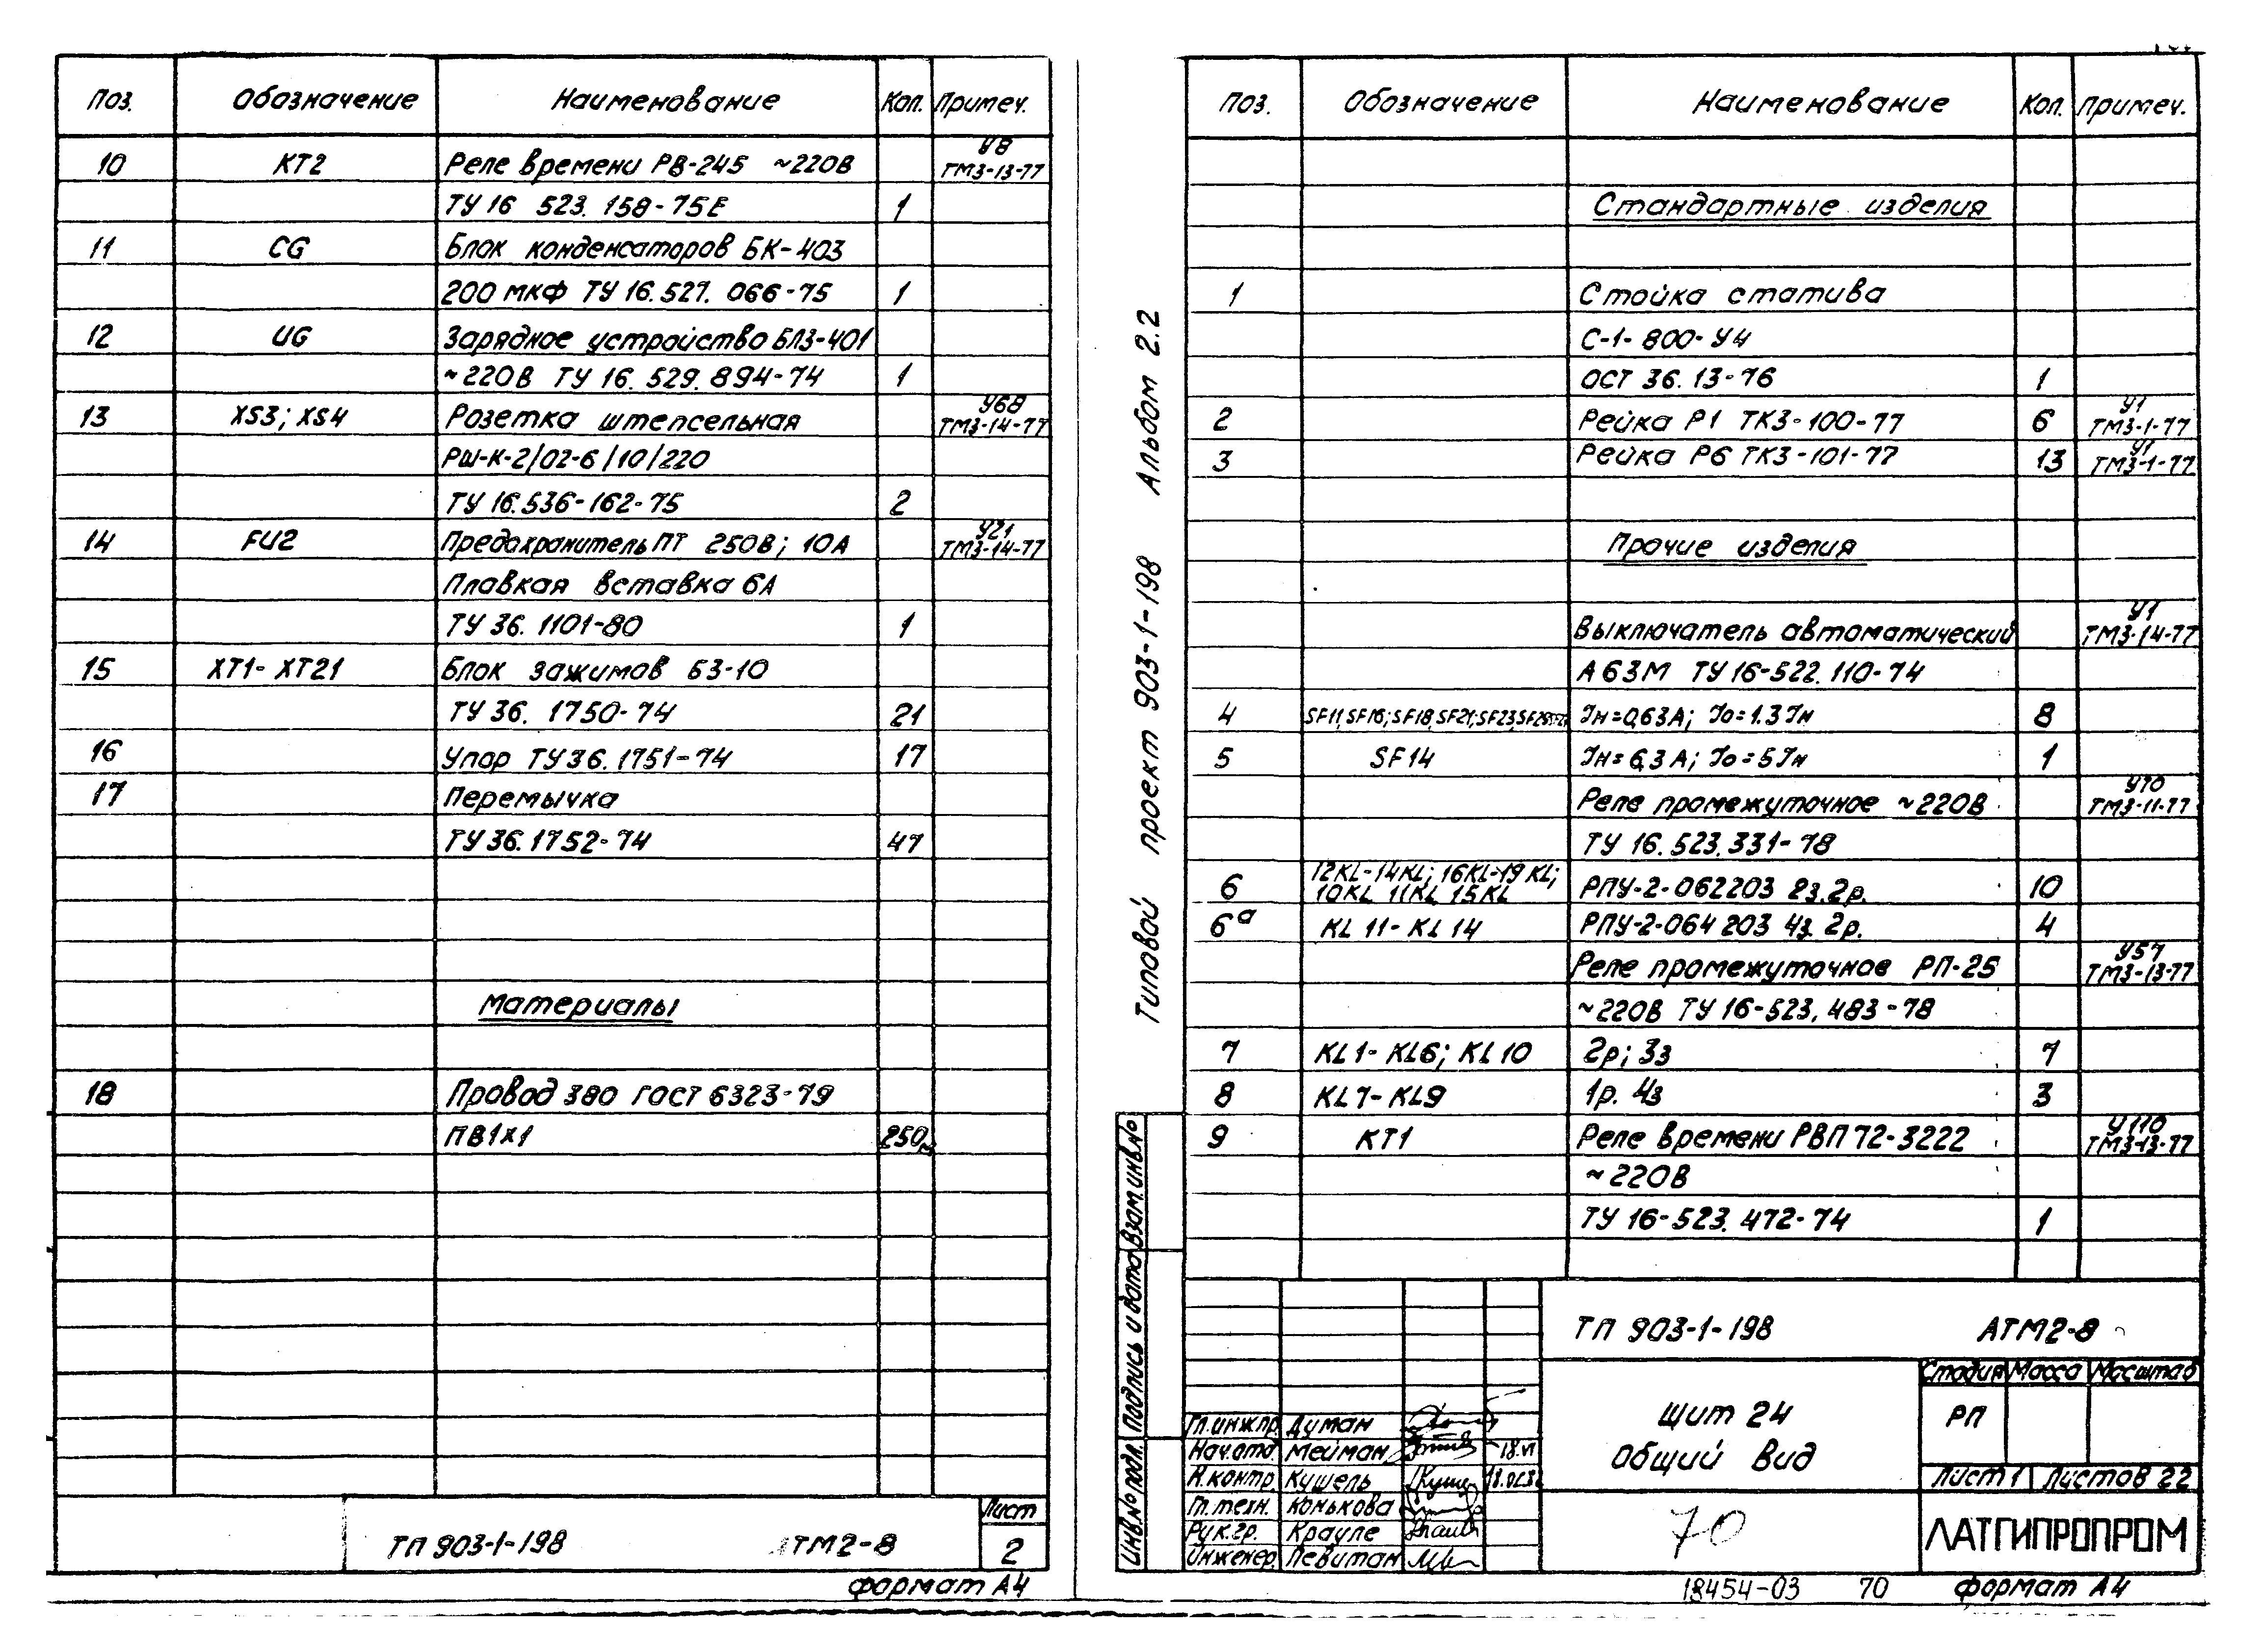 Поз. Обозначение Наименование Кол. Примеч.
10 КТ2 Реле времени РВ-245 ~220В У8 ТМ3-13-77
ТУ 16 523. 158-75Е 1
11 CG Блок конденсаторов БК-403
200 мкФ ТУ 16.527. 066-75 1
12 UG Зарядное устройство БПЗ-401
~220В ТУ 16. 529. 894-74 1
13 XS3; XS4 Розетка штепсельная У68 ТМ3-14-77
РШ-К-2/02-6/10/220
ТУ 16.536-162-75 2
14 FU2 Предохранитель ПТ 250В; 10А У21 ТМ3-14-77
Плавкая вставка 6А
ТУ 36. 1101-80 1
15 ХТ1- ХТ21 Блок зажимов БЗ-10
ТУ 36. 1750-74 21
16 Упор ТУ 36. 1751-74 17
17 Перемычка
ТУ 36. 1752-74 47
Материалы
18 Провод 380 ГОСТ 6323-79
ПВ1х1 250м
ТП 903-1-198 ТМ2-8 Лист 2
Формат А4
Типовой проект 903-1-198 Альбом 2.2
Поз. Обозначение Наименование Кол. Примеч.
Стандартные изделия
1 Стойка статива
С-1-800-У4
ОСТ 36. 13-76 1
2 Рейка Р1 ТК3-100-77 6 У1 ТМ3-1-77
3 Рейка Р6 ТК3-101-77 13 У1 ТМ3-1-77
Прочие изделия
Выключатель автоматический У1 ТМ3-14-77
А63М ТУ 16-522. 110-74
4 SF11, SF16; SF18, SF21; SF23, Iн=0,63А; Iо=1.3Iн 8
5 SF14 Iн=6,3А; Iо=5Iн 1
Реле промежуточное ~220В У70 ТМ3-11-77
ТУ 16.523.331-78
12KL-14KL; 16KL-19KL;
6 10KL 11KL 15KL РПУ-2-062203 2з.2р. 10
6а KL 11- KL 14 РПУ-2-064 203 4з. 2р. 4
Реле промежуточное РП-25 У57 ТМ3-13-77
~220В ТУ 16-523, 483-78
7 KL 1- KL6; KL 10 2р; 3з 7
8 KL7- KL9 1р. 4з 3
9 КТ1 Реле времени РВП 72-3222 У110 ТМ3-13-77
~220В
ТУ 16-523. 472-74 1
Инв.№подл. Подпись и дата Взам.инв.№
ТП 903-1-198 АТМ2-8
Стадия Масса Масштаб
Щит 24
Общий вид
РП
Лист 1 Листов 22
Гл.инж.пр. Думан
Нач.отд. Мейман 18.VI
Н.контр. Кушель
Гл.техн. Конькова
Рук.гр. Крауле
Инженер. Левитан
70
ЛАТГИПРОПРОМ
18454-03 70 Формат А4